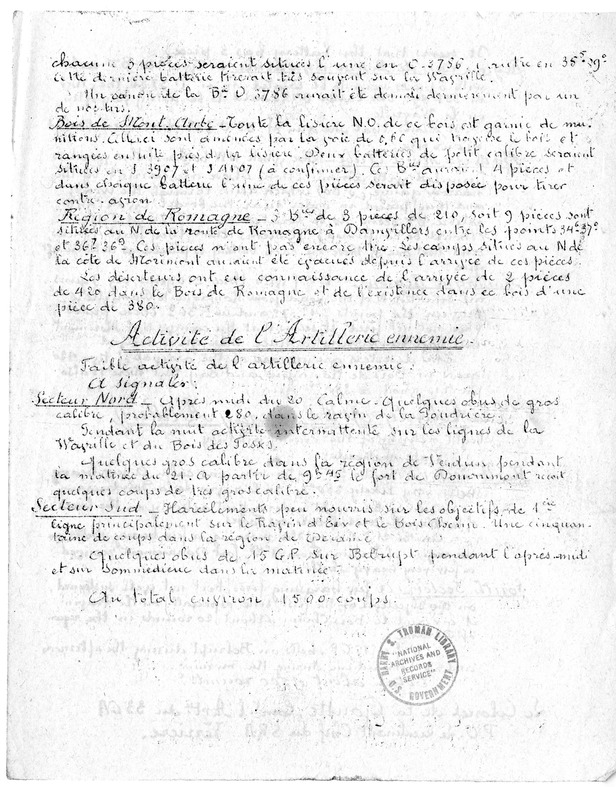 chacune 3 pièces seraient situées l'une en C.3756, l'autre en 35⁵.39⁰
cette dernière batterie tirerait très souvent sur la Wavrille.
Un canon de la Bie U 3786 aurait été démoli dernièrement par un
de nos tirs.
Bois de Mont Aubé _ Toute la lisière N.O. de ce bois est garnie de mu-
nitions. Celles-ci sont amenées par la voie de 0,60 qui traverse le bois et
rangées ensuite près de la lisière. Deux batteries de petit calibre seraient
situées en S 3907 et S 4107 (à confirmer). Ces Bies auraient 4 pièces et
dans chaque batterie l'une de ces pièces serait disposée pour tirer
contre avion.
Région de Romagne _ 3 Bies de 3 pièces de 210, soit 9 pièces sont
situées au N. de la route de Romagne à Damvillers entre les points 34².37⁰
et 36².36⁰. Ces pièces n'ont pas encore tiré. Les camps situés au N de
la côte de Morimont auraient été évacués depuis l'arrivée de ces pièces.
Les déserteurs ont eu connaissance de l'arrivée de 2 pièces
de 420 dans le Bois de Romagne et de l'existence dans ce bois d'une
pièce de 380.
Activité de l'Artillerie ennemie.
Faible activité de l'artillerie ennemie.
A signaler:
Secteur Nord _ Après midi du 20 Calme. Quelques obus de gros
calibre, probablement 280, dans le ravin de la Poudrière.
Pendant la nuit activité intermittente sur les lignes de la
Wavrille et du Bois des
Quelques gros calibre dans la région de Verdun pendant
la matinée du 21. A partir de 9h45 le fort de Douaumont reçoit
quelques coups de très gros calibre.
Secteur Sud _ Harcèlements peu nourris sur les objectifs de 1ère
ligne principalement sur le Ravin d'Eix et le bois Une cinquan-
taine de coups dans la région de
Quelques obus de 15 G.P. sur Belrupt pendant l'après-midi
et sur Sommedieue dans la matinée.
Au total environ 1500 coups.
HARRY S. TRUMAN LIBRARY
"NATIONAL
ARCHIVES AND
RECORDS
SERVICE"
U.S. GOVERNMENT